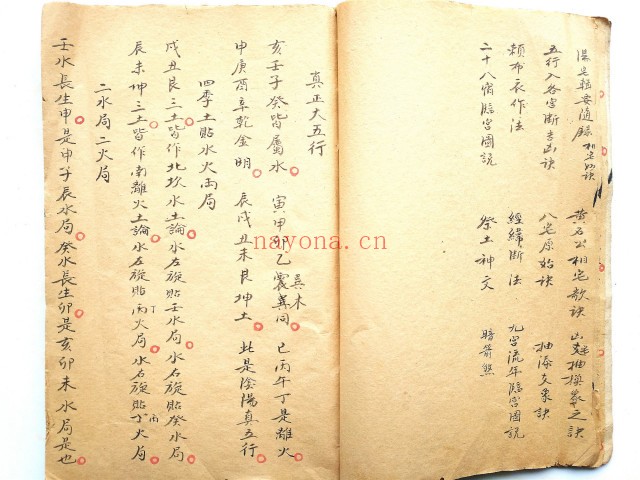 相宅秘訣
黃石公相宅歌訣
山龍抽換象之訣
五行入各宮斷吉凶訣
八宅原始訣
抽添爻象訣
賴布衣作法
經緯斷法
九宮流年臨宮圖説
二十八宿臨宮圖説
祭土神文
暗箭煞
真正大五行
亥壬子癸皆屬水 寅甲卯乙震巽同 巽木 巳丙午丁是離火
申庚酉辛乾金明 辰戌丑未艮坤土 此是陰陽真五行
四季土貼水火兩局
戌丑艮三土皆作北坎水土論水左旋貼壬水局水右旋貼癸水局
辰未坤三土皆作南離火土論水左旋貼丙火局水右旋貼丁火局 丁 丙
二水局二火局
壬水長生申是申子辰水局癸水長生卯是亥卯未水局是也
nayona.cn